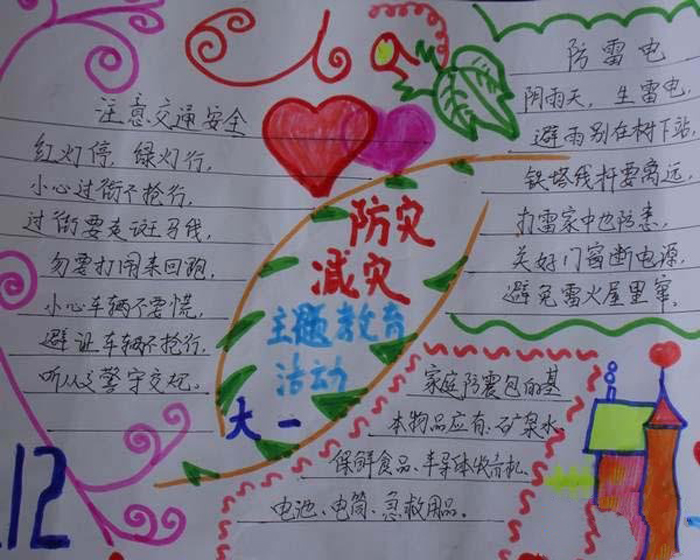 注意交通安全
红灯停, 绿灯行,
小心过街不抢行,
过街要走斑马线,
勿要打闹来回跑,
小心车辆不要慌,
避让车辆不抢行,
听从交警守交规。
防灾
减灾
主题教育
活动
大一
12
防雷电
阴雨天, 生雷电,
避雨别在树下站,
铁塔线杆要离远,
打雷家中也防患,
关好门窗断电源,
避免雷火屋里窜,
家庭防震包的基
本物品应有、矿泉水
保鲜食品、半导体收音机、
电池、电筒、急救用品。